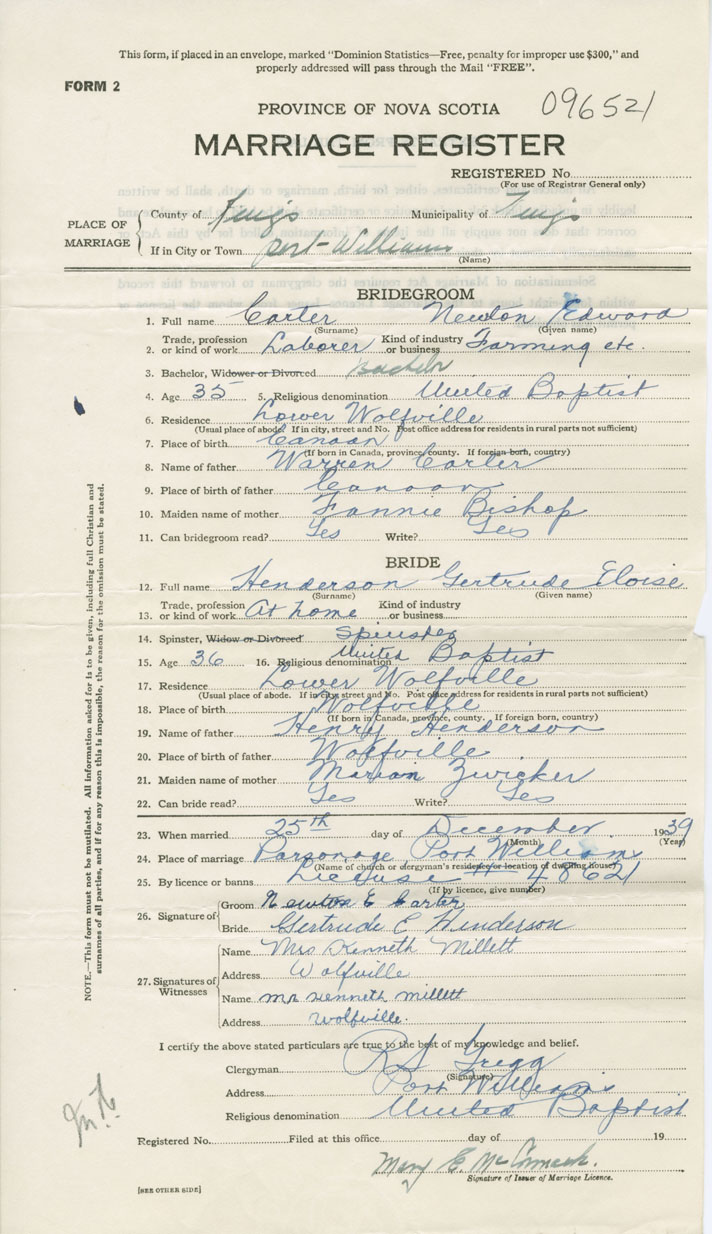 This form, if placed in an envelope, marked "Dominion Statistics—Free, penalty for improper use $300," and
properly addressed will pass through the Mail "FREE".
FORM 2
PROVINCE OF NOVA SCOTIA 096521
MARRIAGE REGISTER
REGISTERED No.
(For use of Registrar General only)
PLACE OF MARRIAGE
County of Kings Municipality of Kings
If in City or Town Port-Williams
(Name)
BRIDEGROOM
1. Full name Carter Newton Edward
(Surname) (Given name)
2. Trade, profession or kind of work Laborer Kind of industry or business Farming etc.
3. Bachelor, Widower or Divorced Bachelor
4. Age 35 5. Religious denomination United Baptist
6. Residence Lower Wolfville
(Usual place of abode. If in city, street and No. Post office address for residents in rural parts not sufficient)
7. Place of birth Canaan
(If born in Canada, province, county. If foreign born, country)
8. Name of father Warren Carter
9. Place of birth of father Canaan
10. Maiden name of mother Fannie Bishop
11. Can bridegroom read? Yes Write? Yes
BRIDE
12. Full name Henderson Gertrude Eloise
(Surname) (Given name)
13. Trade, profession or kind of work At home Kind of industry or business
14. Spinster, Widow or Divorced Spinster
15. Age 36 16. Religious denomination United Baptist
17. Residence Lower Wolfville
(Usual place of abode. If in city, street and No. Post office address for residents in rural parts not sufficient)
18. Place of birth Wolfville
(If born in Canada, province, county. If foreign born, country)
19. Name of father Henry Henderson
20. Place of birth of father Wolfville
21. Maiden name of mother Marian Zwicker
22. Can bride read? Yes Write? Yes
23. When married 25th day of December 1939
(Month) (Year)
24. Place of marriage Parsonage Port Williams
(Name of church or clergyman's residence or location of dwelling house)
25. By licence or banns License # 48621
(If by licence, give number)
26. Signature of
Groom Newton E Carter
Bride Gertrude E Henderson
27. Signatures of Witnesses
Name Mrs Kenneth Millett
Address Wolfville
Name Mr Kenneth Millett
Address Wolfville.
I certify the above stated particulars are true to the best of my knowledge and belief.
Clergyman R S Gregg
(Signature)
Address Port Williams
Religious denomination United Baptist
Registered No. Filed at this office day of 19
Mary E. McCormack.
Signature of Issuer of Marriage Licence.
[SEE OTHER SIDE]
NOTE.—This form must not be mutilated. All information asked for is to be given, including full Christian and
surnames of all parties, and if for any reason this is impossible, the reason for the omission must be stated.